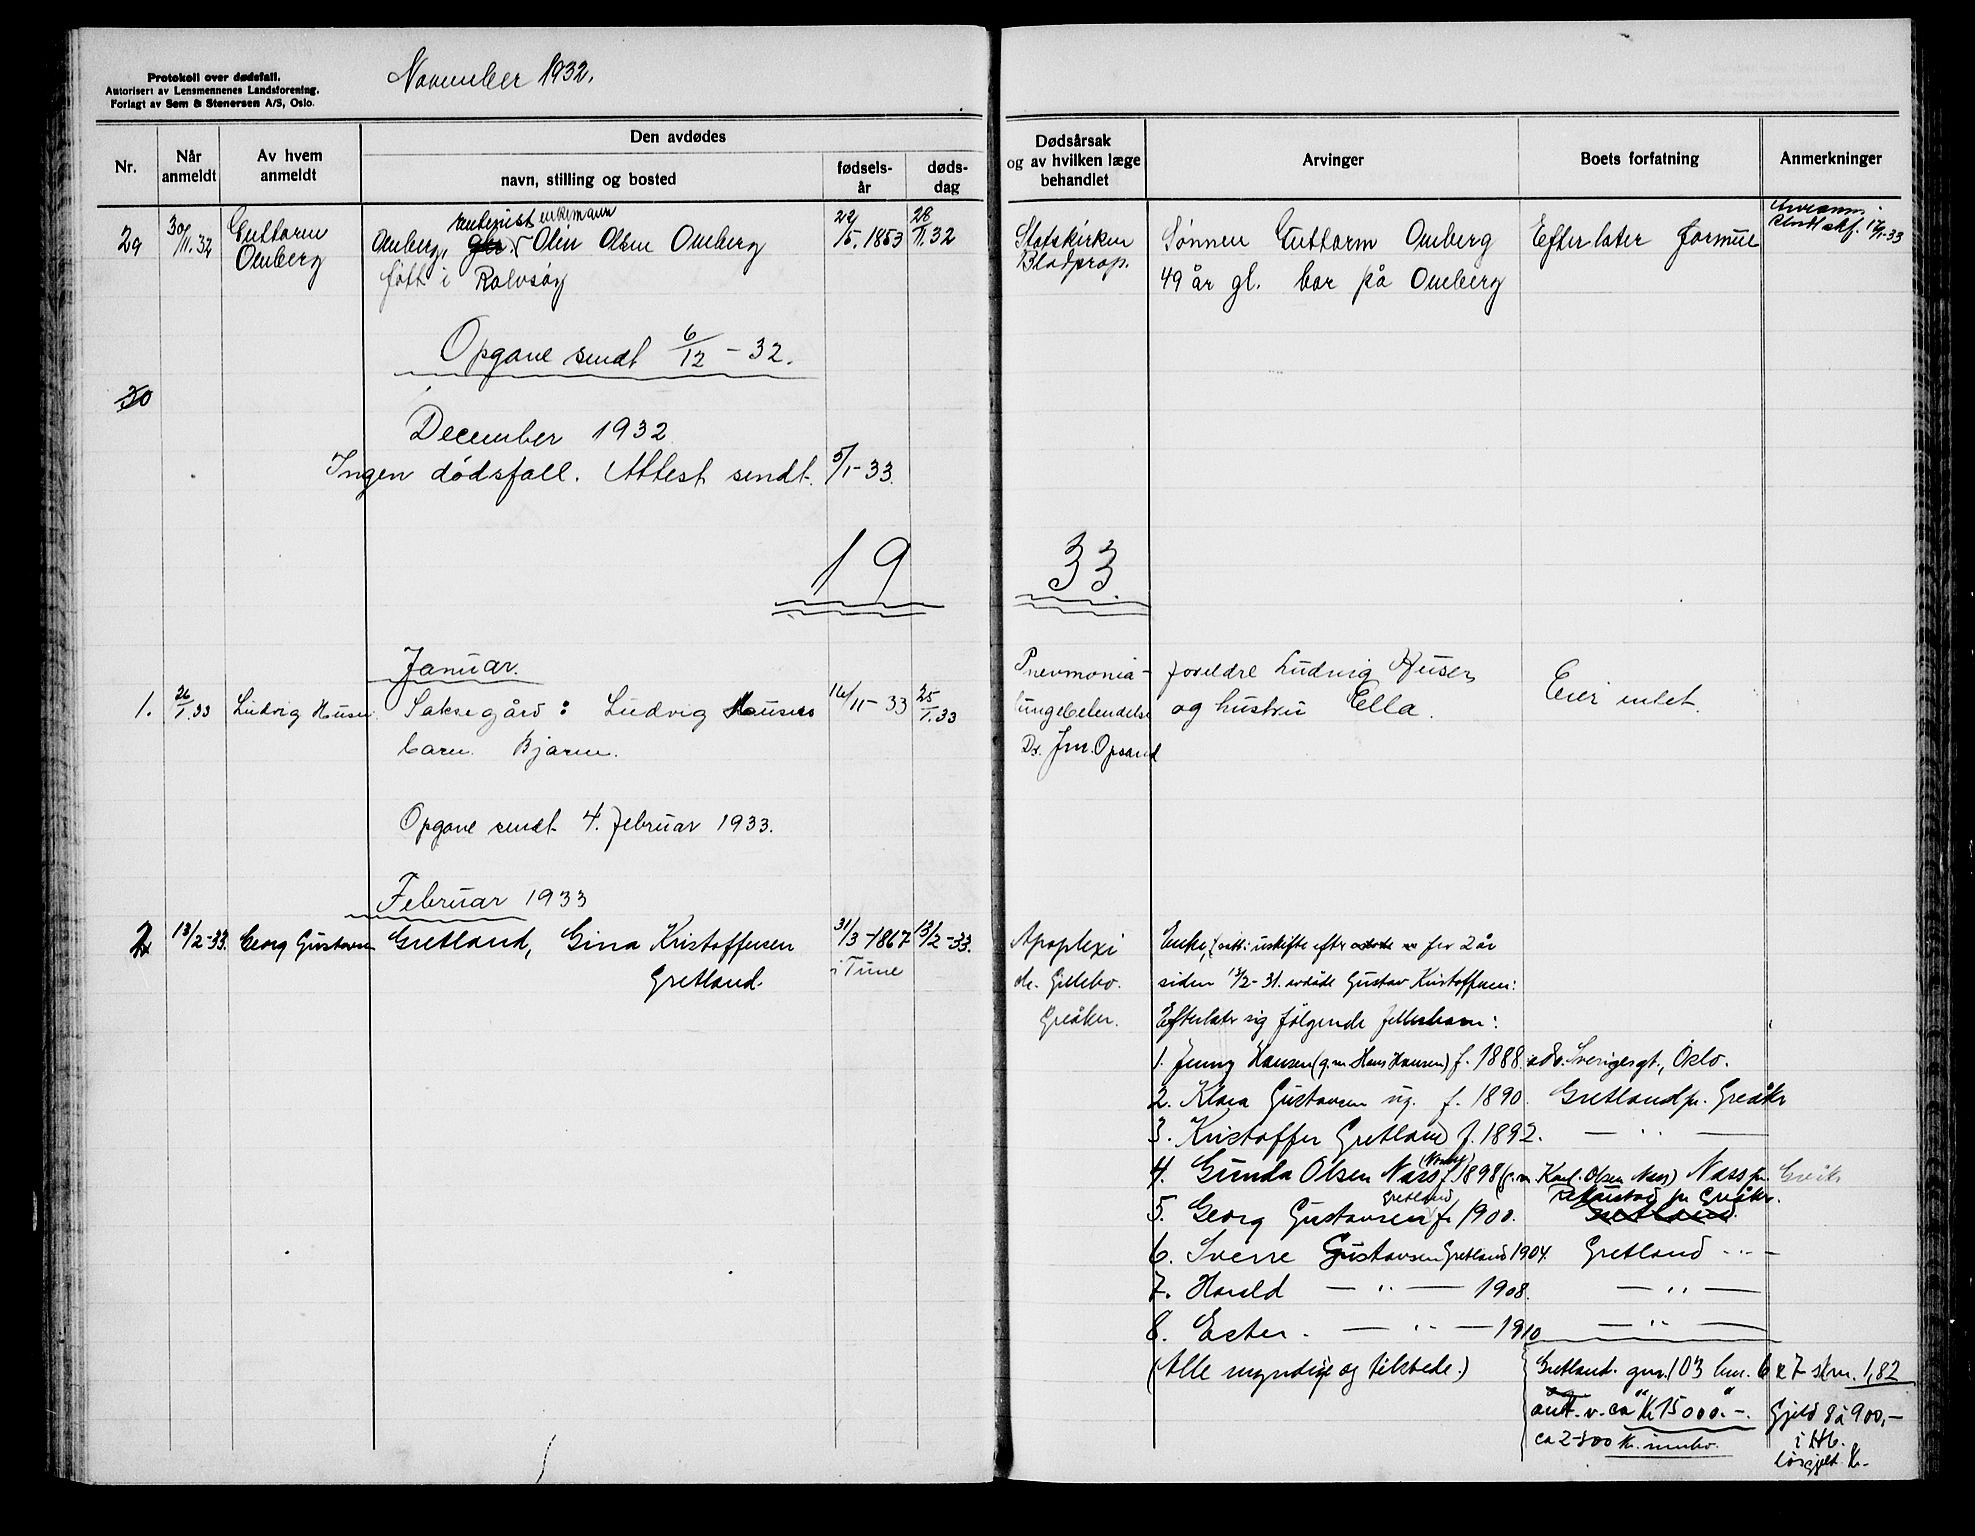 November 1932.
Protokoll over dødsfall.
Autorisert av Lensmennenes Landsforening.
Forlagt av Sem & Stenersen A/S, Oslo.
Nr.
Når anmeldt
Av hvem anmeldt
Den avdødes
navn, stilling og bosted
fødsels-år
døds-dag
Dødsårsak og av hvilken læge behandlet
Arvinger
Boets forfatning
Anmerkninger
29 30/11.32 Guttorm Omberg
Omberg, rentenist enkemann Olin Olsen Omberg
født i Rolvsøy
22/5. 1853 28/11.32
Statskirken
Blodprop.
Sønnen Guttorm Omberg
49 år gl. bor på Omberg
Efterlater formue
skf. 17/1-33
Opgave sendt 6/12-32.
30
December 1932
Ingen dødsfall. Attest sendt. 5/1-33.
19 33.
Januar.
1. 26/1.33 Ludvig Husen Saksegård: Ludvig Husens
barn Bjarne.
16/11-33 25/1.33
Pnevmonia-
lungebetendelse
Dr. Opsand
foreldre Ludvig Husen
og hustru Ella.
Eier intet.
Opgave sendt 4. februar 1933.
Februar 1933
2 13/2-33. Georg Gustavsen Gretland, Gina Kristoffersen
Gretland.
31/3-1867 13/2-33.
i Tune
Apoplexi
dr. Gillebo.
Greåker.
Enke, (sitt. i uskifte efter for 2 år
siden 13/2-31. avdøde Gustav Kristoffersen:
Efterlater sig følgende fellesbarn:
1. Jenny Hansen (g.m. Hans Hansen) f. 1888. adr. Sverigesgt., Oslo.
2. Klara Gustavsen ug. f. 1890. Gretland pr. Greåker
3. Kristoffer Gretland f. 1892. — " —
4. Gunda Olsen Næss f. 1898 (g.m. Karl Olsen Næss) Næss pr. Greåk.
5. Georg Gustavsen Gretland f. 1900. pr. Greåker.
Gretland.
6. Sverre Gustavsen Gretland 1904. Gretland — " —
7. Harald — " — 1908. — " —
8. Ester. — " — 1910 — " —
(Alle myndige og tilstede.)
Gretland. gnr. 103 bnr. 6 & 7 skm. 1,82
ant. v. ca Kr 15000.-. Gjeld 900,-
i Hb.
innbo.
løsgjeld Kr.-